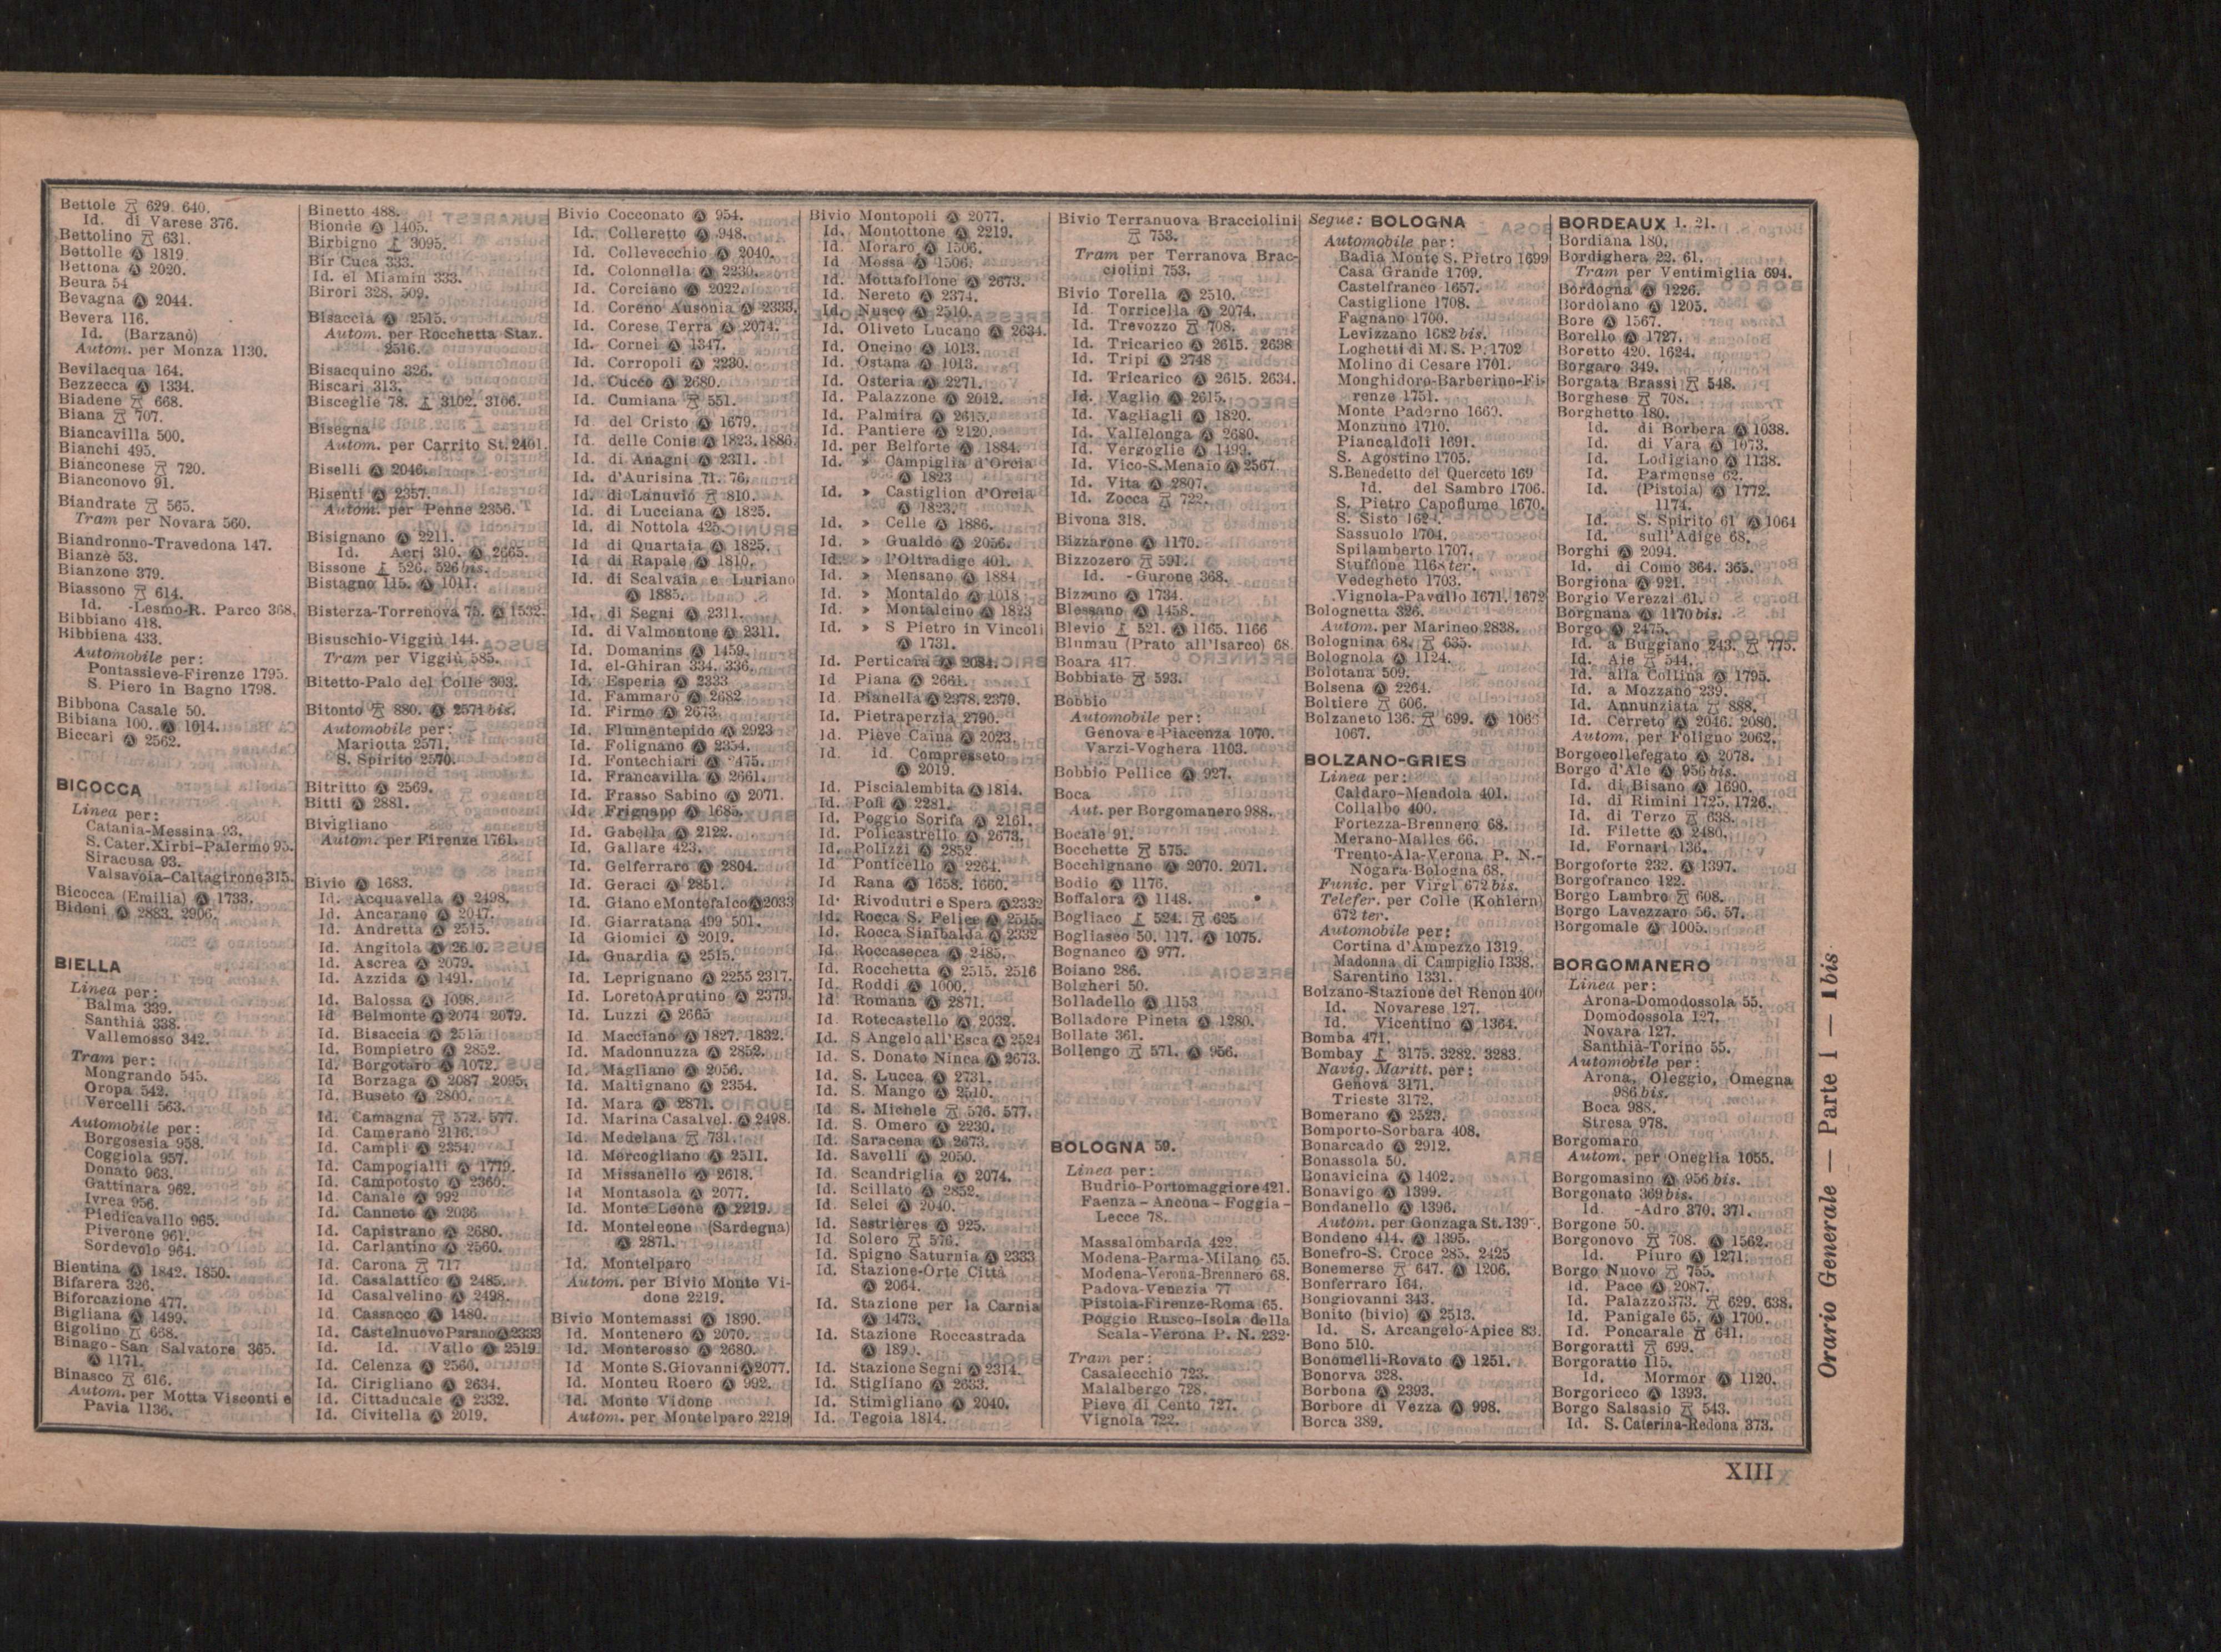 Bettole 629. 640.
Id. di Varese 376.
Bettolino 631.
Bettolle Ⓐ 1819.
Bettona Ⓐ 2020.
Beura 54
Bevagna Ⓐ 2044.
Bevera 116.
Id. (Barzanò)
Autom. per Monza 1130.
Bevilacqua 164.
Bezzecca Ⓐ 1334.
Biadene 668.
Biana 707.
Biancavilla 500.
Bianchi 495.
Bianconese 720.
Bianconovo 91.
Biandrate 565.
Tram per Novara 560.
Biandronno-Travedona 147.
Bianzè 53.
Bianzone 379.
Biassono 614.
Id. -Lesmo-R. Parco 368.
Bibbiano 418.
Bibbiena 433.
Automobile per:
Pontassieve-Firenze 1795.
S. Piero in Bagno 1798.
Bibbona Casale 50.
Bibiana 100. Ⓐ 1014.
Biccari Ⓐ 2562.
BICOCCA
Linea per:
Catania-Messina 93.
S. Cater. Xirbi-Palermo 95.
Siracusa 93.
Valsavoia-Caltagirone 315.
Bicocca (Emilia) Ⓐ 1733.
Bidoni Ⓐ 2883. 2906.
BIELLA
Linea per:
Balma 339.
Santhià 338.
Vallemosso 342.
Tram per:
Mongrando 545.
Oropa 542.
Vercelli 563.
Automobile per:
Borgosesia 958.
Coggiola 957.
Donato 963.
Gattinara 962.
Ivrea 956.
Piedicavallo 965.
Piverone 961.
Sordevolo 964.
Bientina Ⓐ 1842. 1850.
Bifarera 326.
Biforcazione 477.
Bigliana Ⓐ 1499.
Bigolino 668.
Binago-San Salvatore 365.
Ⓐ 1171.
Binasco 616.
Autom. per Motta Visconti e
Pavia 1136.
Binetto 488.
Bionde Ⓐ 1405.
Birbigno 3095.
Bir Cuca 333.
Id. el Miamin 333.
Birori 328. 509.
Bisaccia Ⓐ 2515.
Autom. per Rocchetta Staz.
2516.
Bisacquino 326.
Biscari 313.
Bisceglie 78. 3102. 3106.
Bisegna
Autom. per Carrito St. 2401.
Biselli Ⓐ 2046.
Bisenti Ⓐ 2357.
Autom. per Penne 2356.
Bisignano Ⓐ 2211.
Id. Acri 310. Ⓐ 2665.
Bissone 526. 526 bis.
Bistagno 115. Ⓐ 1011.
Bisterza-Torrenova 75. Ⓐ 1532.
Bisuschio-Viggiù 144.
Tram per Viggiù 585.
Bitetto-Palo del Colle 303.
Bitonto 880. Ⓐ 2571 bis.
Automobile per:
Mariotta 2571.
S. Spirito 2570.
Bitritto Ⓐ 2569.
Bitti Ⓐ 2881.
Bivigliano
Autom. per Firenze 1761.
Bivio Ⓐ 1683.
Id. Acquavella Ⓐ 2498.
Id. Ancarano Ⓐ 2047.
Id. Andretta Ⓐ 2515.
Id. Angitola Ⓐ
Id. Ascrea Ⓐ 2079.
Id. Azzida Ⓐ 1491.
Id. Balossa Ⓐ 1098.
Id Belmonte Ⓐ 2074 2079.
Id. Bisaccia Ⓐ 2515
Id. Bompietro Ⓐ 2852.
Id. Borgotaro Ⓐ 1072.
Id Borzaga Ⓐ 2087 2095.
Id. Buseto Ⓐ 2800.
Id. Camagna 572. 577.
Id. Camerano 2116.
Id. Campli Ⓐ 2354.
Id. Campogialli Ⓐ 1779.
Id. Campotosto Ⓐ 2360.
Id. Canale Ⓐ 992
Id. Canneto Ⓐ 2036
Id. Capistrano Ⓐ 2680.
Id. Carlantino Ⓐ 2560.
Id. Carona 717
Id. Casalattico Ⓐ 2485.
Id Casalvelino Ⓐ 2498.
Id Cassacco Ⓐ 1480.
Id. Castelnuovo Parano Ⓐ 2333
Id. Id. Vallo Ⓐ 2519.
Id. Celenza Ⓐ 2560.
Id. Cirigliano Ⓐ 2634.
Id. Cittaducale Ⓐ 2332.
Id. Civitella Ⓐ 2019.
Bivio Cocconato Ⓐ 954.
Id. Colleretto Ⓐ 948.
Id. Collevecchio Ⓐ 2040.
Id. Colonnella Ⓐ 2230.
Id. Corciano Ⓐ 2022.
Id. Coreno Ausonia Ⓐ 2333.
Id. Corese Terra Ⓐ 2074.
Id. Cornei Ⓐ 1347.
Id. Corropoli Ⓐ 2230.
Id. Cucco Ⓐ 2680.
Id. Cumiana 551.
Id del Cristo Ⓐ 1679.
Id. delle Conie Ⓐ 1823. 1886.
Id. di Anagni Ⓐ 2311.
Id. d'Aurisina 71. 76.
Id. di Lanuvio 810.
Id. di Lucciana Ⓐ 1825.
Id. di Nottola 425.
Id di Quartaia Ⓐ 1825.
Id di Rapale Ⓐ 1810.
Id. di Scalvaia e Luriano
Ⓐ 1885.
Id. di Segni Ⓐ 2311.
Id. di Valmontone Ⓐ 2311.
Id. Domanins Ⓐ 1459.
Id. el-Ghiran 334. 336.
Id. Esperia Ⓐ 2333
Id. Fammaro Ⓐ 2682
Id. Firmo Ⓐ 2673.
Id. Flumentepido Ⓐ 2923
Id. Folignano Ⓐ 2354.
Id. Fontechiari Ⓐ 2475.
Id. Francavilla Ⓐ 2661.
Id. Frasso Sabino Ⓐ 2071.
Id. Frignano Ⓐ 1685.
Id. Gabella Ⓐ 2122.
Id. Gallare 423.
Id. Gelferraro Ⓐ 2804.
Id. Geraci Ⓐ 2851.
Id. Giano e Montefalco Ⓐ 2033
Id. Giarratana 499 501.
Id Giomici Ⓐ 2019.
Id. Guardia Ⓐ 2515.
Id. Leprignano Ⓐ 2255 2317.
Id. Loreto Aprutino Ⓐ 2379.
Id. Luzzi Ⓐ 2665
Id. Macciano Ⓐ 1827. 1832.
Id. Madonnuzza Ⓐ 2852.
Id. Magliano Ⓐ 2056.
Id. Maltignano Ⓐ 2354.
Id. Mara Ⓐ 2871.
Id. Marina Casalvel. Ⓐ 2498.
Id. Medelana 731.
Id. Mercogliano Ⓐ 2511.
Id Missanello Ⓐ 2618.
Id Montasola Ⓐ 2077.
Id. Monte Leone Ⓐ 2219.
Id. Monteleone (Sardegna)
Ⓐ 2871.
Id. Montelparo
Autom. per Bivio Monte Vi-
done 2219.
Bivio Montemassi Ⓐ 1890.
Id. Montenero Ⓐ 2070.
Id. Monterosso Ⓐ 2680.
Id Monte S. Giovanni Ⓐ 2077.
Id. Monteu Roero Ⓐ 992.
Id. Monte Vidone
Autom. per Montelparo 2219
Bivio Montopoli Ⓐ 2077.
Id. Montottone Ⓐ 2219.
Id. Moraro Ⓐ 1506.
Id Mossa Ⓐ 1506.
Id. Mottafollone Ⓐ 2673.
Id. Nereto Ⓐ 2374.
Id. Nusco Ⓐ 2510.
Id. Oliveto Lucano Ⓐ 2634.
Id. Oncino Ⓐ 1013.
Id. Ostana Ⓐ 1013.
Id. Osteria Ⓐ 2271.
Id. Palazzone Ⓐ 2012.
Id. Palmira Ⓐ 2615.
Id. Pantiere Ⓐ 2120.
Id. per Belforte Ⓐ 1884.
Id. » Campiglia d'Orcia
Ⓐ 1823
Id. » Castiglion d'Orcia
Ⓐ 1823.
Id. » Celle Ⓐ 1886.
Id. » Gualdo Ⓐ 2056.
Id. » l'Oltradige 401.
Id. » Mensano Ⓐ 1884
Id. » Montaldo Ⓐ 1018
Id. » Montalcino Ⓐ 1823
Id. » S Pietro in Vincoli
Ⓐ 1731.
Id. Perticara Ⓐ 2084.
Id Piana Ⓐ 2661.
Id Pianella Ⓐ 2378. 2379.
Id. Pietraperzia 2790.
Id. Pieve Caina Ⓐ 2023.
Id. id. Compresseto
Ⓐ 2019.
Id. Piscialembita Ⓐ 1814.
Id. Pofi Ⓐ 2281.
Id. Poggio Sorifa Ⓐ 2161.
Id. Policastrello Ⓐ 2673.
Id. Polizzi Ⓐ 2852.
Id Ponticello Ⓐ 2264.
Id Rana Ⓐ 1658. 1660.
Id. Rivodutri e Spera Ⓐ 2332
Id. Rocca S. Felice Ⓐ 2515.
Id. Rocca Sinibalda Ⓐ 2332
Id. Roccasecca Ⓐ 2485.
Id. Rocchetta Ⓐ 2515. 2516
Id. Roddi Ⓐ 1000.
Id. Romana Ⓐ 2871.
Id Rotecastello Ⓐ 2032.
Id. S Angelo all'Esca Ⓐ 2524
Id. S. Donato Ninea Ⓐ 2673.
Id. S. Lucca Ⓐ 2731.
Id. S. Mango Ⓐ 2510.
Id S. Michele 576. 577.
Id. S. Omero Ⓐ 2230.
Id. Saracena Ⓐ 2673.
Id. Savelli Ⓐ 2050.
Id. Scandriglia Ⓐ 2074.
Id. Scillato Ⓐ 2852.
Id. Selci Ⓐ 2040.
Id. Sestrières Ⓐ 925.
Id. Solero 576.
Id. Spigno Saturnia Ⓐ 2333
Id. Stazione-Orte Città
Ⓐ 2064.
Id. Stazione per la Carnia
Ⓐ 1473.
Id. Stazione Roccastrada
Id. Stazione Segni Ⓐ 2314.
Id. Stigliano Ⓐ 2633.
Id. Stimigliano Ⓐ 2040.
Id. Tegoia 1814.
Bivio Terranuova Bracciolini
753.
Tram per Terranova Brac-
ciolini 753.
Bivio Torella Ⓐ 2510.
Id. Torricella Ⓐ 2074.
Id. Trevozzo 708.
Id. Tricarico Ⓐ 2615. 2638
Id. Tripi Ⓐ 2748
Id. Tricarico Ⓐ 2615. 2634.
Id. Vaglio Ⓐ 2615.
Id. Vagliagli Ⓐ 1820.
Id. Vallelonga Ⓐ 2680.
Id. Vergoglie Ⓐ 1499.
Id. Vico-S. Menaio Ⓐ 2567
Id. Vita Ⓐ 2807.
Id. Zocca 722.
Bivona 318.
Bizzarone Ⓐ 1170.
Bizzozero 591.
Id. -Gurone 368.
Bizzuno Ⓐ 1734.
Blessano Ⓐ 1458.
Blevio 521. Ⓐ 1165. 1166
Blumau (Prato all'Isarco) 68.
Boara 417
Bobbiate 593.
Bobbio
Automobile per:
Genova e Piacenza 1070.
Varzi-Voghera 1103.
Bobbio Pellice Ⓐ 927.
Boca
Aut. per Borgomanero 988.
Bocale 91.
Bocchette 575.
Bocchignano Ⓐ 2070. 2071.
Bodio Ⓐ 1176.
Boffalora Ⓐ 1148.
Bogliaco 524. 625
Bogliasco 50. 117. Ⓐ 1075.
Bognanco Ⓐ 977.
Boiano 286.
Bolgheri 50.
Bolladello Ⓐ 1153
Bolladore Pineta Ⓐ 1280.
Bollate 361.
Bollengo 571. Ⓐ 956.
BOLOGNA 59.
Linea per:
Budrio-Portomaggiore 421.
Faenza-Ancona-Foggia-
Lecce 78.
Massalombarda 422.
Modena-Parma-Milano 65.
Modena-Verona-Brennero 68.
Padova-Venezia 77
Pistoia-Firenze-Roma 65.
Poggio Rusco-Isola della
Scala-Verona P. N. 232.
Tram per:
Casalecchio 723.
Malalbergo 728.
Pieve di Cento 727.
Vignola 722.
Segue: BOLOGNA
Automobile per:
Badia Monte S. Pietro 1699
Casa Grande 1709.
Castelfranco 1657.
Castiglione 1708.
Fagnano 1700.
Levizzano 1682 bis.
Loghetti di M. S. P. 1702
Molino di Cesare 1701.
Monghidoro-Barberino-Fi-
renze 1751.
Monte Paderno 1669.
Monzuno 1710.
Piancaldoli 1691.
S. Agostino 1705.
S. Benedetto del Querceto 169
Id. del Sambro 1706.
S. Pietro Capofiume 1670.
S. Sisto
Sassuolo 1704.
Spilamberto 1707.
Stuffione 1168 ter.
Vedegheto 1703.
Vignola-Pavullo 1671. 1672
Bolognetta 326.
Autom. per Marineo 2838.
Bolognina 68. 635.
Bolognola Ⓐ 1124.
Bolotana 509.
Bolsena Ⓐ 2264.
Boltiere 606.
Bolzaneto 136. 699. Ⓐ
1067.
BOLZANO-GRIES
Linea per:
Caldaro-Mendola 401.
Collalbo 400.
Fortezza-Brennero 68.
Merano-Malles 66.
Trento-Ala-Verona P. N.-
Nogara-Bologna 68.
Funic. per Virgl 672 bis.
Telefer. per Colle (Kohlern)
672 ter.
Automobile per:
Cortina d'Ampezzo 1319.
Madonna di Campiglio 1338.
Sarentino 1331.
Bolzano-Stazione del Renon 400
Id. Novarese 127.
Id. Vicentino Ⓐ 1364.
Bomba 471.
Bombay 3175. 3282. 3283.
Navig. Maritt. per:
Genova 3171.
Trieste 3172.
Bomerano Ⓐ 2523.
Bomporto-Sorbara 408.
Bonarcado Ⓐ 2912.
Bonassola 50.
Bonavicina Ⓐ 1402.
Bonavigo Ⓐ 1399.
Bondanello Ⓐ 1396.
Autom. per Gonzaga St.
Bondeno 414. Ⓐ 1395.
Bonefro-S. Croce 285. 2425
Bonemerse 647. Ⓐ 1206.
Bonferraro 164.
Bongiovanni 343.
Bonito (bivio) Ⓐ 2513.
Id. S. Arcangelo-Apice 83.
Bono 510.
Bonomelli-Rovato Ⓐ 1251.
Bonorva 328.
Borbona Ⓐ 2393.
Borbore di Vezza Ⓐ 998.
Borca 389.
BORDEAUX 1. 21.
Bordiana 180.
Bordighera 22. 61.
Tram per Ventimiglia 694.
Bordogna Ⓐ 1226.
Bordolano Ⓐ 1205.
Bore Ⓐ 1567.
Borello Ⓐ 1727.
Boretto 420. 1624.
Borgaro 349.
Borgata Brassi 548.
Borghese 708.
Borghetto 180.
Id. di Borbera Ⓐ 1038.
Id. di Vara Ⓐ 1073.
Id. Lodigiano Ⓐ 1138.
Id. Parmense 62.
Id. (Pistoia) Ⓐ 1772.
1174.
Id. S. Spirito 61 Ⓐ 1064
Id. sull'Adige 68.
Borghi Ⓐ 2094.
Id. di Como 364. 365.
Borgiona Ⓐ 921.
Borgio Verezzi 61.
Borgnana Ⓐ 1170 bis.
Borgo Ⓐ 2475.
Id. a Buggiano 243. 775.
Id. Aie 544.
Id. alla Collina Ⓐ 1795.
Id. a Mozzano 239.
Id. Annunziata 888.
Id. Cerreto Ⓐ 2046. 2080.
Autom. per Foligno 2062.
Borgocollefegato Ⓐ 2078.
Borgo d'Ale Ⓐ 956 bis.
Id. di Bisano Ⓐ 1690.
Id. di Rimini 1725. 1726.
Id. di Terzo 638.
Id. Filette Ⓐ 2480.
Id. Fornari 136.
Borgoforte 232. Ⓐ 1397.
Borgofranco 122.
Borgo Lambro 608.
Borgo Lavezzaro 56. 57.
Borgomale Ⓐ 1005.
BORGOMANERO
Linea per:
Arona-Domodossola 55.
Domodossola 127.
Novara 127.
Santhià-Torino 55.
Automobile per:
Arona, Oleggio, Omegna
986 bis.
Boca 988.
Stresa 978.
Borgomaro
Autom. per Oneglia 1055.
Borgomasino Ⓐ 956 bis.
Borgonato 369 bis.
Id. -Adro 370. 371.
Borgone 50.
Borgonovo 708. Ⓐ 1562.
Id. Piuro Ⓐ 1271.
Borgo Nuovo 755.
Id. Pace Ⓐ 2087.
Id. Palazzo 373. 629. 638.
Id. Panigale 65. Ⓐ 1700.
Id. Poncarale 641.
Borgoratti 699.
Borgoratto 115.
Id. Mormor Ⓐ 1120.
Borgoricco Ⓐ 1393.
Borgo Salsasio 543.
Id. S. Caterina-Redona 373.
Orario Generale — Parte I — 1bis
XIII